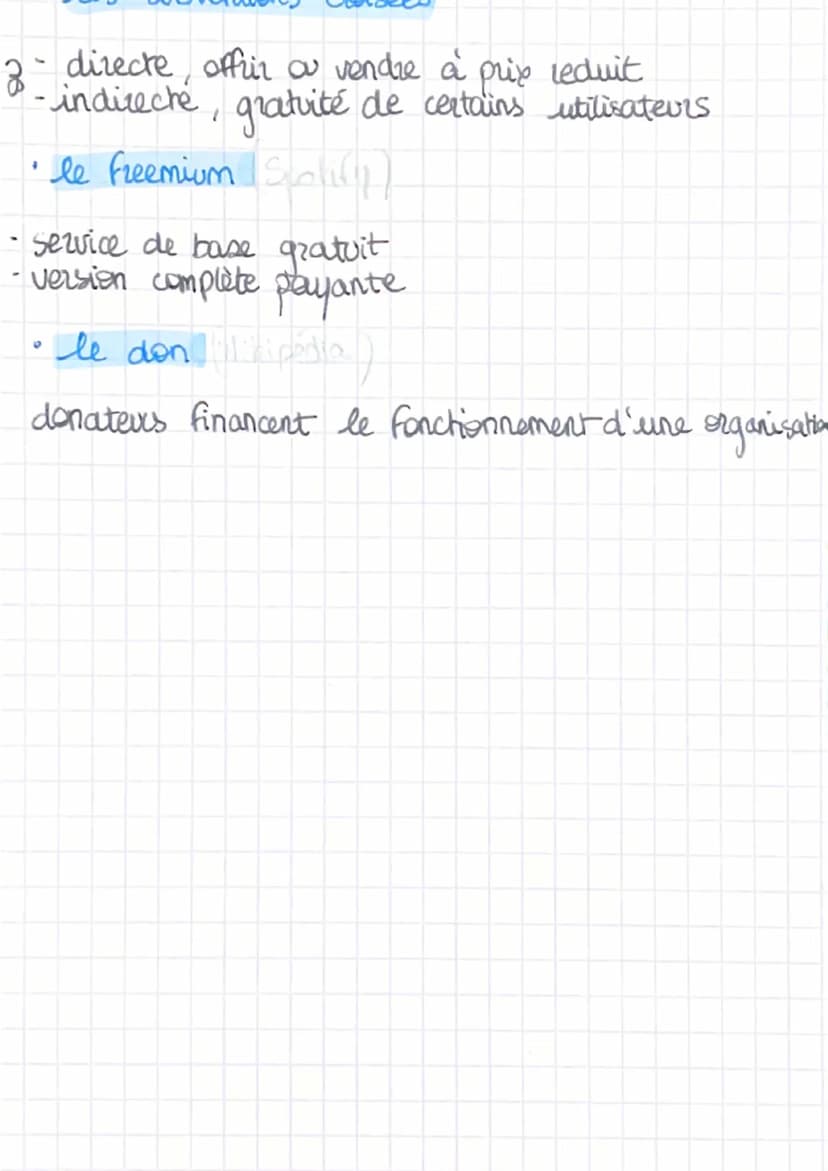 - directe, offrir ou vendre à prix reduit
- indirecte, gratuité de certains utilisateurs
• le freemium (Spotify)
- service de base gratuit
- version complète payante
• le don (Wikipédia)
donateurs financent le fonctionnement d'une organisation